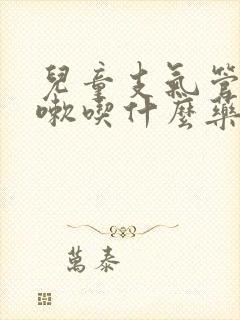 兒童支氣管
嗽喫什麼藥
萬泰